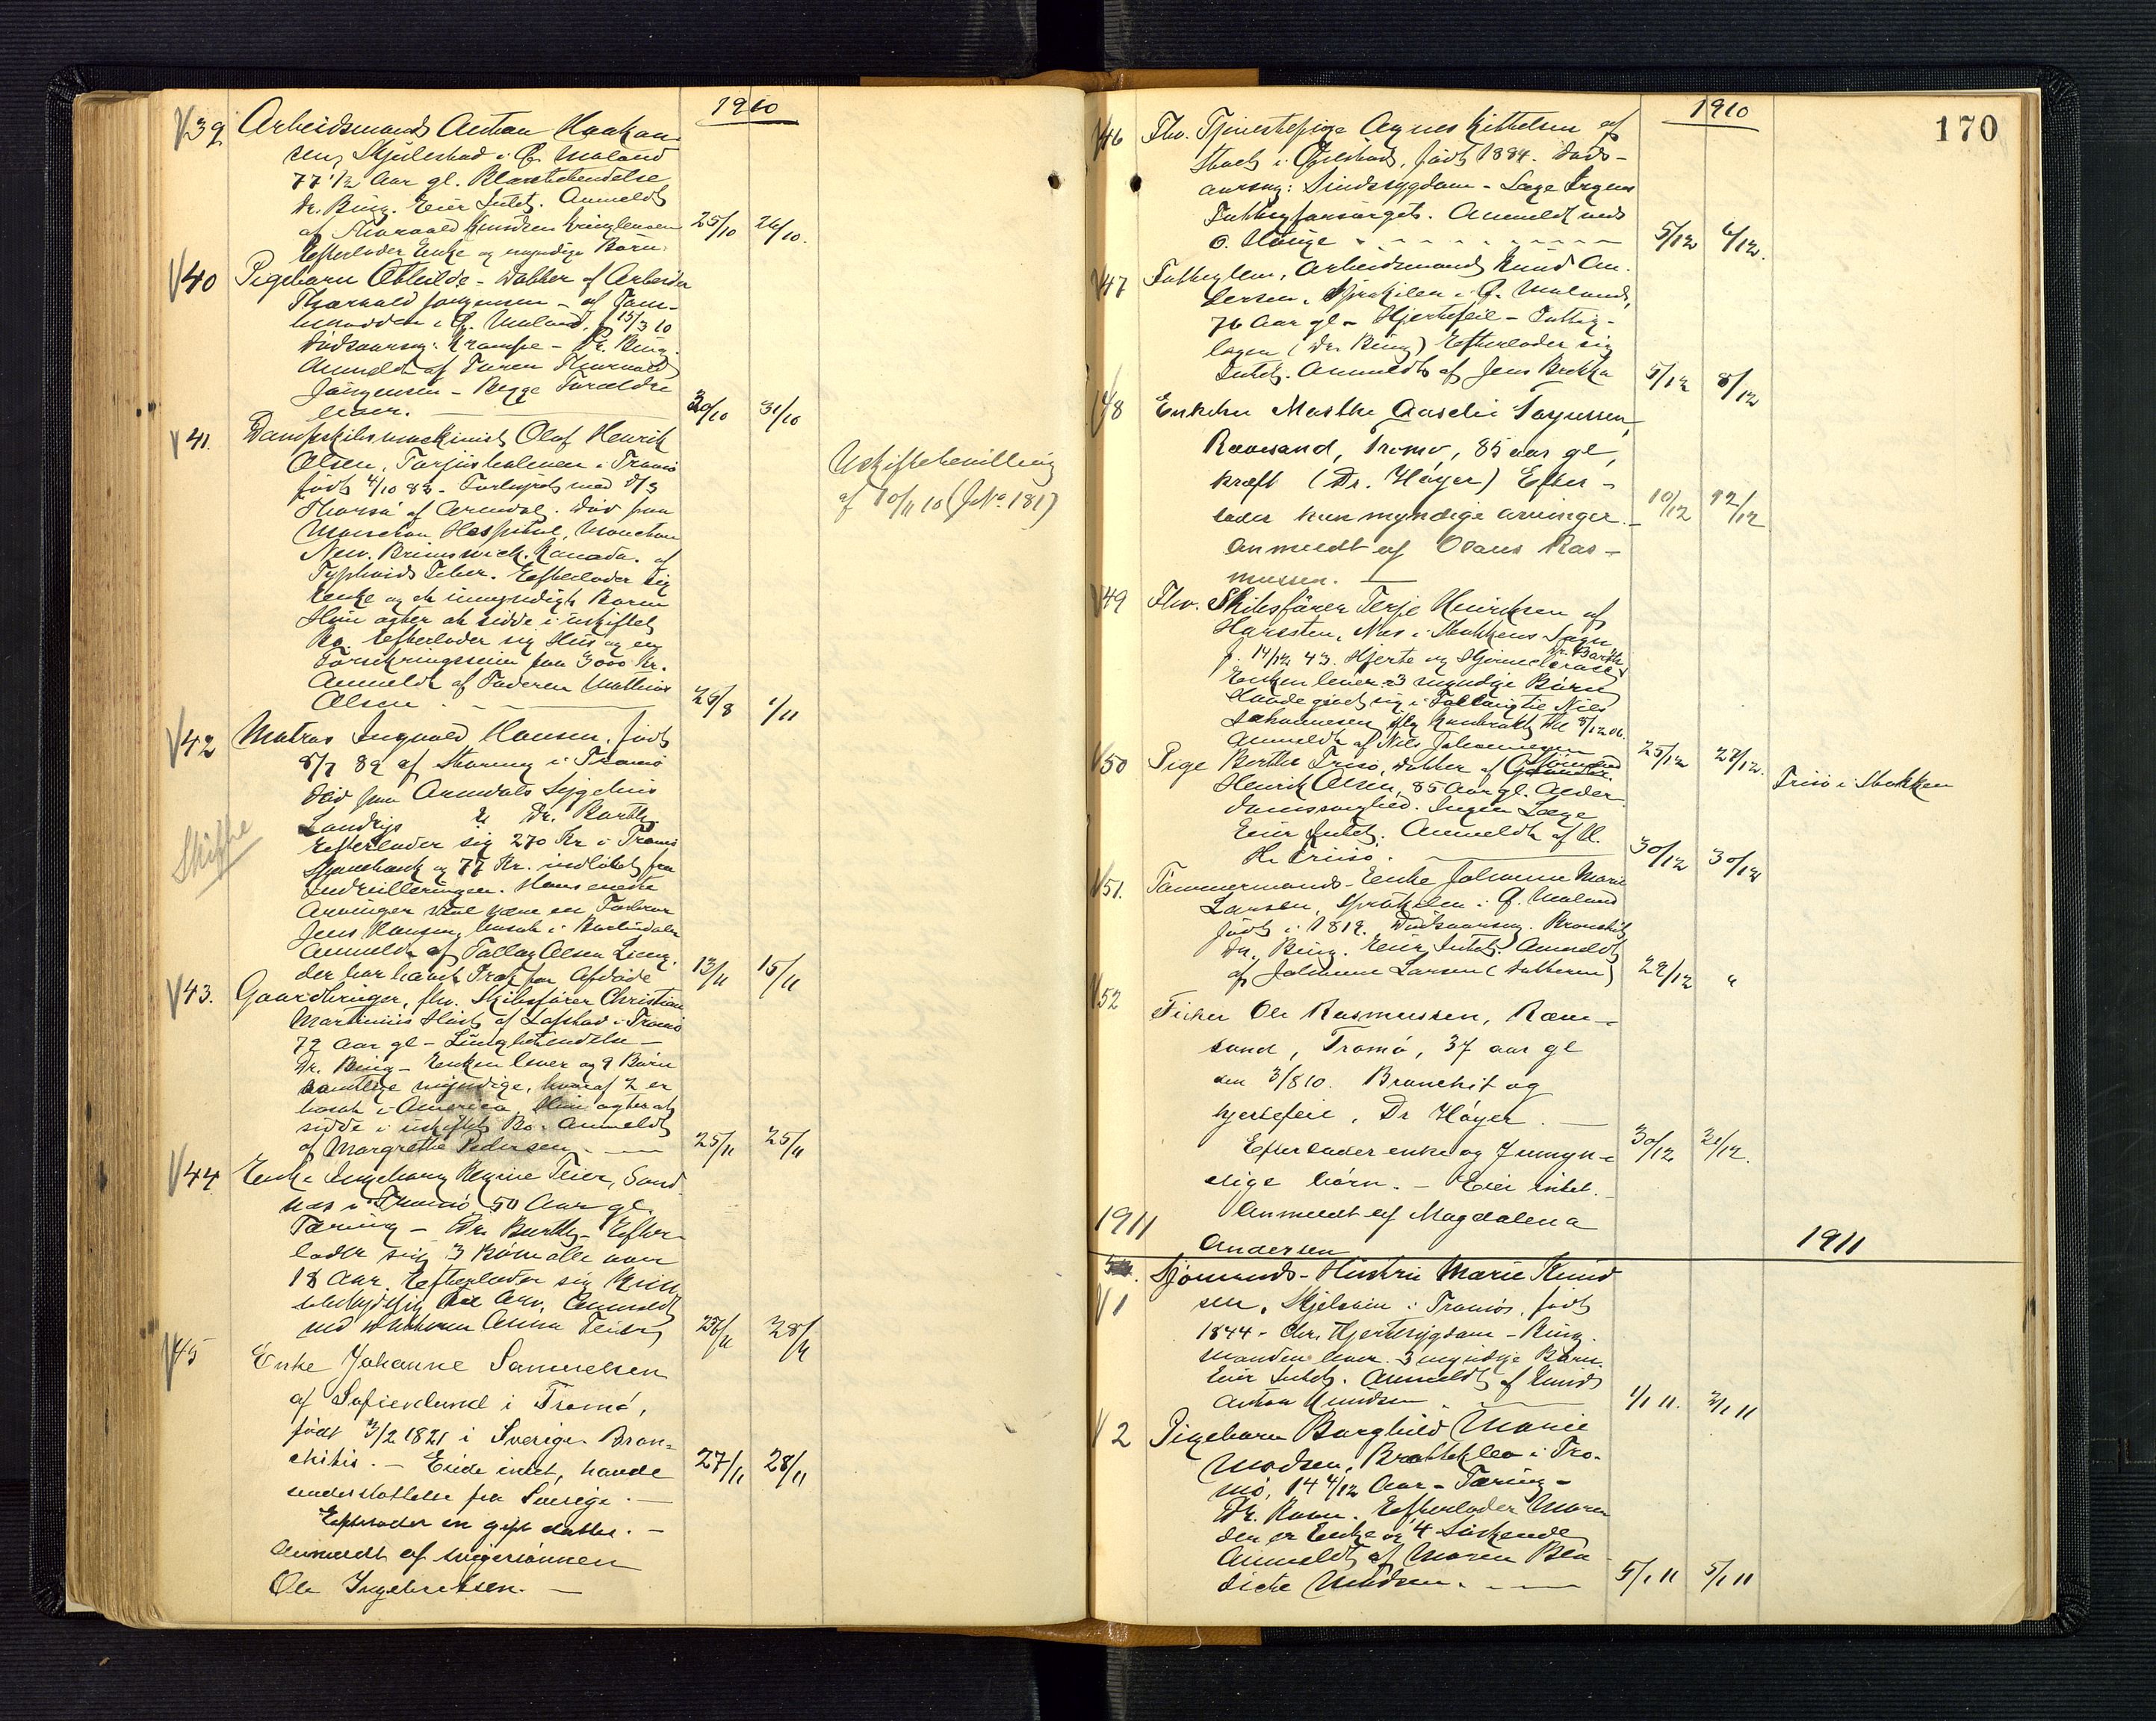 1910
39. Arbeidsmand Anton Haakon-
sen, Skjulestad i Ø. Moland
77 1/2 Aar gl. Blærebetendelse
Dr. Bing. Eier Intet. Anmeldt
af Thorvald Knudsen 25/10 26/10.
Efterlader Enke og myndige Børn.
40 Pigebarn Othilde - Datter af Arbeider
Thorvald Jørgensen - af
i Ø. Moland, f 15/3 10
Dødsaarsag: Krampe - Dr. Bing.
Anmeldt af Faren Thorvald
Jørgensen - Begge Forældre
lever. 30/10 31/10
41. Dampskibsmaskinist Olaf Henrik
Olsen, Torjusholmen i Tromø
født 4/10 83 -
af Arendal. Død paa
Moncton Hospital, Moncton
New. Brunswick. Kanada. af
Typhoid Feber. Efterlader sig
Enke og et umyndigt Barn
Hun agter at sidde i uskiftet
Bo. Efterlader sig Hus og en
Forsikringssum paa 3000 Kr.
Anmeldt af Faderen Mathias
Olsen 29/8 1/11
Uskiftebevilling
af 10/11 10 (J.No. 181)
42 Matros Ingvald Hansen, født
8/7 89 af i Tromø
Død paa Arendals Sygehus
Dr. Barth.
Efterlader sig 270 Kr i Tromø
Sparebank og 77 Kr. indløbet fra
Hans eneste
Arvinger skal være en Farbror
Jens Hansen, bosat i
Anmeldt af Tallag Olsen
der har havt Træf for Afdøde 13/11 15/11
Skifte
43. Gaardbruger, fhv. Skibsfører Christian
Martinius af Lofstad i Tromø
72 Aar gl - Lungebetændelse -
Dr. Bing - Enken lever og 9 Børn
samtlige myndige, hvoraf 2 er
bosat i America, Hun agter at
sidde i uskiftet Bo. Anmeldt
af Margrethe Pedersen 25/11 25/11
44 Enke Ingeborg Regine Feier, Sand-
næs i Tromø 50 Aar gl.
Tæring - Dr. Barth - Efter-
lader sig 3 Børn alle over
18 Aar. Efterlader sig Kun
ubetydelig Anmeldt
ved Datteren Anna Feier 28/11
45 Enke Johanne Samuelsen
af Sofienlund i Tromø,
født 3/2 1821 i Sverige. Bron-
chitis. - Eiede intet, havde
understøttelse fra Sverige. -
Efterlader en gift datter. - 27/11 28/11
Anmeldt af svigersønnen
Ole Ingebretsen. -
1910
170
46 Fhv. Tjenestepige Agnes Kittelsen af
i Øiestad, født 1884. Døds-
aarsag: Sindssygdom - Læge
Fattigforsørget. Anmeldt ved
O. Hauge 5/12 6/12.
47 Fattiglem, Arbeidsmand Knud An-
dersen, Sprækilen i Ø. Moland,
76 Aar gl - Hjertefeil - Fattig-
lægen (Dr. Bing) Efterlader sig
Intet. Anmeldt af Jens Brekka 5/12 8/12
48 Enkefru Marthe Aaselie Tarjussen,
Rævesand, Tromø, 85 aar gl,
kræft (Dr. Høyer) Efter-
lader kun myndige arvinger. - 10/12 12/12
Anmeldt af Olaus Ras-
mussen.
49 Fhv. Skibsfører Terje Henriksen af
Harsten, Næs i Stokkens Sogn
f. 14/12 43. Hjerte og Dr. Barth
Enken lever. 3 myndige Børn
Havde givet sig i Følaug til Niels
Johannesen iflg Kontrakt thl 8/12 06.
Anmeldt af Nils Johannesen 25/12 27/12.
50 Pige Berthe Frisø, Datter af
Henrik Olsen, 85 Aar gl. Alder-
domssvaghed. Ingen Læge
Eier Intet. Anmeldt af
H. Frisø. 30/12 30/12
Frisø i Stokken
51. Tømmermands-Enke Johanne Marie
Larsen, Sprækilen i Ø. Moland
født i 1819. Dødsaarsag. Bronchit
Dr. Bing. Eier Intet. Anmeldt
af Johanne Larsen (Datteren) 29/12 "
52 Fisker Ole Rasmussen, Ræve-
sand, Tromø, 37 aar gl
den 3/8 10. Bronchit og
hjertefeil, Dr Høyer. -
Efterlader enke og 7 umyn- 30/12 31/12.
dige børn. - Eier intet. -
Anmeldt af Magdalena
Andersen
1911
1911
1 Sjømands-Hustru Marie Knud
sen, i Tromø, født
1844 - Chr. Hjertesygdom - Bing.
Manden lever. 3 myndige Børn.
Eier Intet. Anmeldt af Knud
Anton Knudsen 1/1 11. 2/1 11
2 Pigebarn Borghild Marie
Madsen, Bratteklev i Tro-
mø, 14 4/12 Aar - Tæring -
Dr. Efterlader Moren
der er Enke og 4 Søskende
Anmeldt af Moren
5/1 11 5/1 11